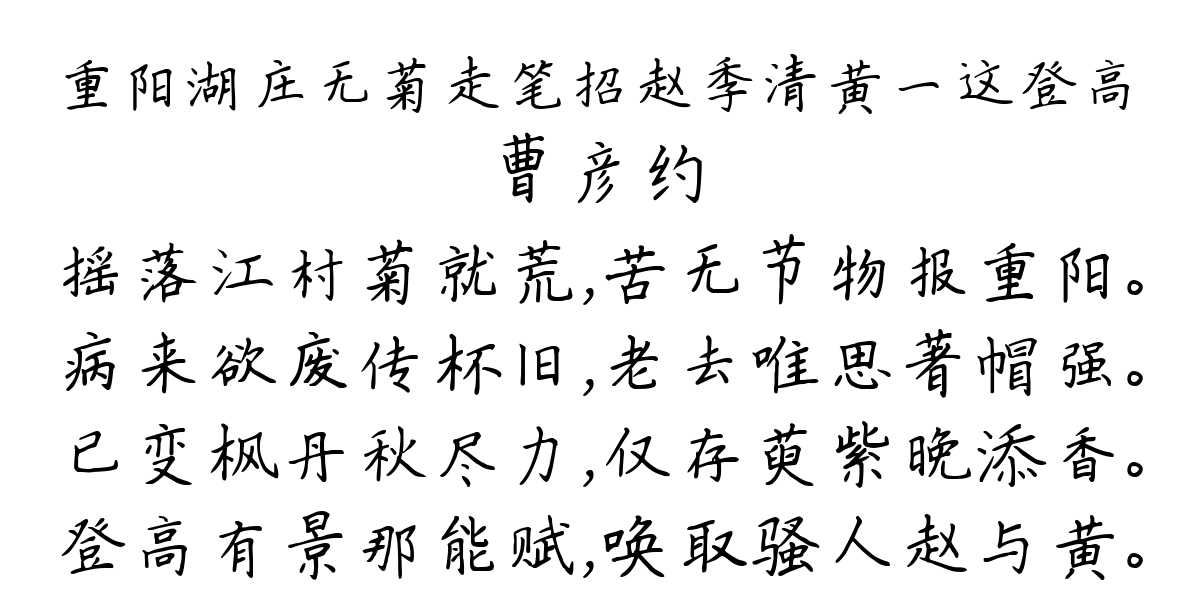 重阳湖庄无菊走笔招赵季清黄一这登高
曹彦约
摇落江村菊就荒,苦无节物报重阳。
病来欲废传杯旧,老去唯思著帽强。
已变枫丹秋尽力,仅存萸紫晚添香。
登高有景那能赋,唤取骚人赵与黄。